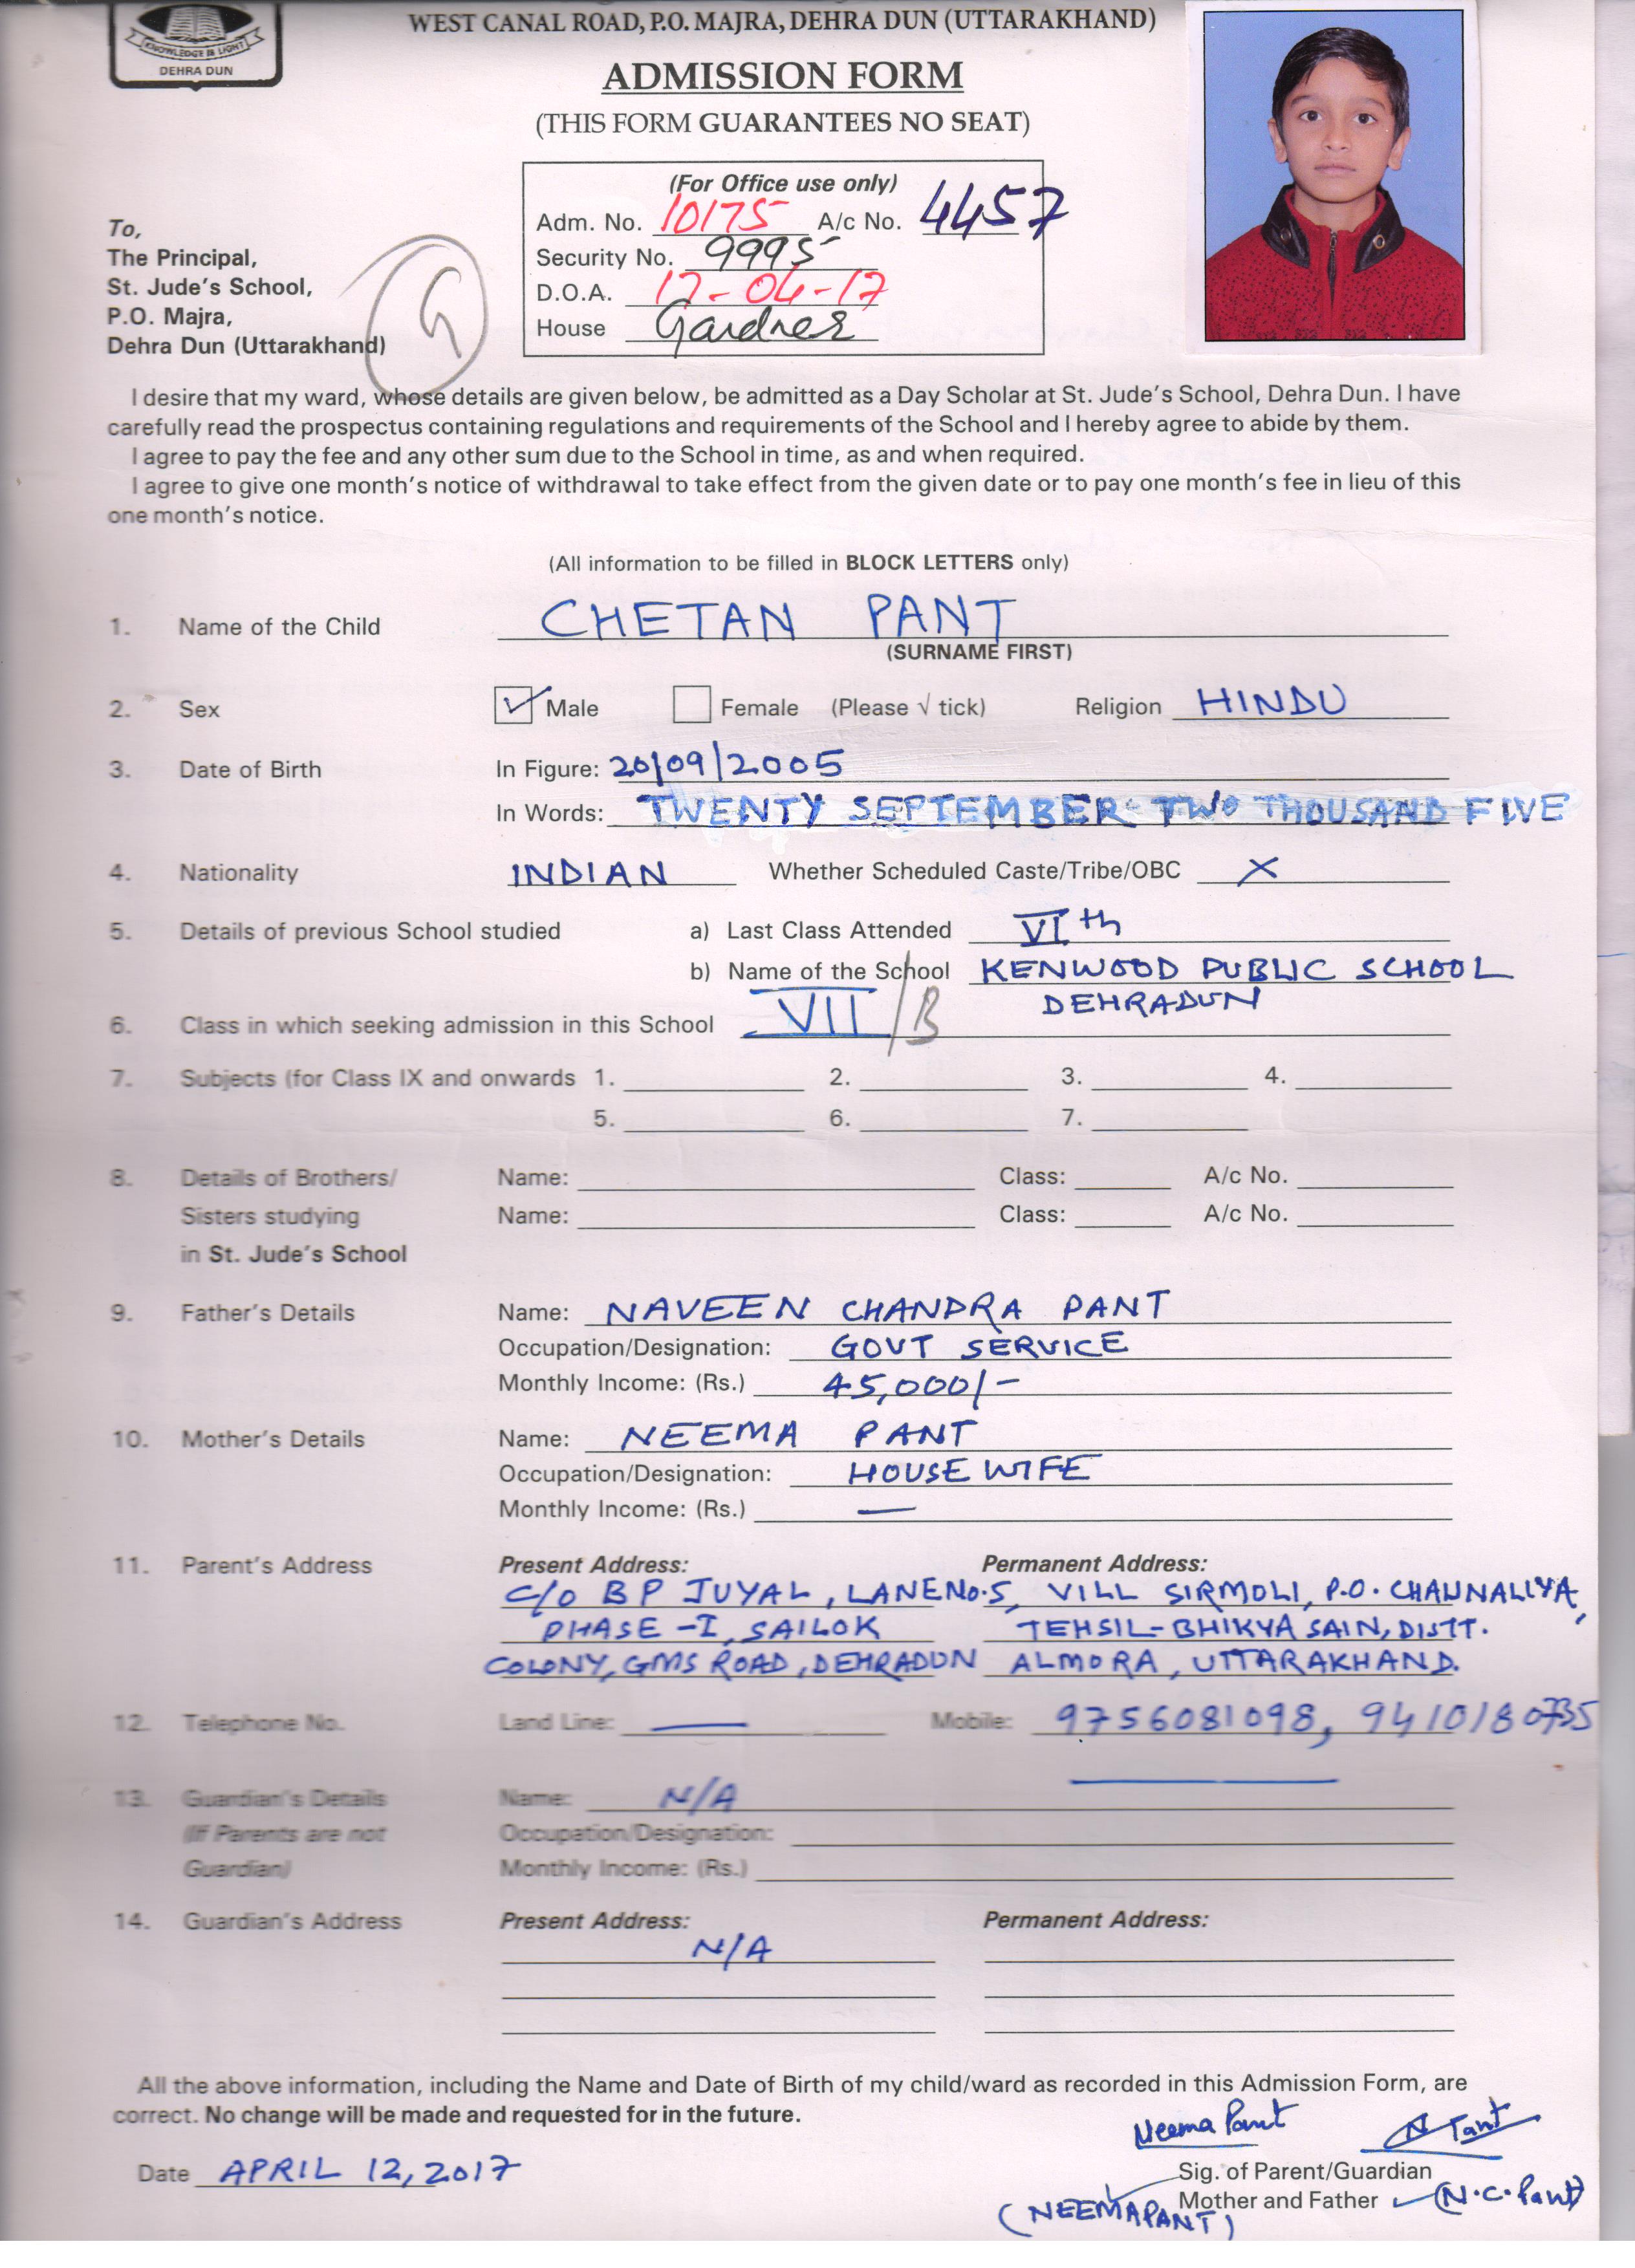 KNOWLEDGE IS LIGHT
DEHRA DUN
WEST CANAL ROAD, P.O. MAJRA, DEHRA DUN (UTTARAKHAND)
ADMISSION FORM
(THIS FORM GUARANTEES NO SEAT)
(For Office use only)
Adm. No. 10175 A/c No. 4457
Security No. 9995
D.O.A. 17-04-17
House Gardner
To,
The Principal,
St. Jude's School,
P.O. Majra,
Dehra Dun (Uttarakhand)
G
I desire that my ward, whose details are given below, be admitted as a Day Scholar at St. Jude's School, Dehra Dun. I have
carefully read the prospectus containing regulations and requirements of the School and I hereby agree to abide by them.
I agree to pay the fee and any other sum due to the School in time, as and when required.
I agree to give one month's notice of withdrawal to take effect from the given date or to pay one month's fee in lieu of this
one month's notice.
(All information to be filled in BLOCK LETTERS only)
1. Name of the Child CHETAN PANT
(SURNAME FIRST)
2. Sex Male Female (Please √ tick) Religion HINDU
3. Date of Birth In Figure: 20/09/2005
In Words: TWENTY SEPTEMBER TWO THOUSAND FIVE
4. Nationality INDIAN Whether Scheduled Caste/Tribe/OBC X
5. Details of previous School studied a) Last Class Attended VIth
b) Name of the School KENWOOD PUBLIC SCHOOL
DEHRADUN
6. Class in which seeking admission in this School VII/B
7. Subjects (for Class IX and onwards 1. 2. 3. 4.
5. 6. 7.
8. Details of Brothers/ Name: Class: A/c No.
Sisters studying Name: Class: A/c No.
in St. Jude's School
9. Father's Details Name: NAVEEN CHANDRA PANT
Occupation/Designation: GOVT SERVICE
Monthly Income: (Rs.) 45,000/-
10. Mother's Details Name: NEEMA PANT
Occupation/Designation: HOUSE WIFE
Monthly Income: (Rs.) —
11. Parent's Address Present Address: Permanent Address:
C/O B P JUYAL, LANE No.5, VILL SIRMOLI, P.O. CHAUNALIYA,
PHASE-I, SAILOK TEHSIL-BHIKYA SAIN, DISTT.
COLONY, GMS ROAD, DEHRADUN ALMORA, UTTARAKHAND.
12. Telephone No. Land Line: — Mobile: 9756081098, 9410180735
13. Guardian's Details Name: N/A
(If Parents are not Occupation/Designation:
Guardian) Monthly Income: (Rs.)
14. Guardian's Address Present Address: Permanent Address:
N/A
All the above information, including the Name and Date of Birth of my child/ward as recorded in this Admission Form, are
correct. No change will be made and requested for in the future.
Neema Pant N Pant
Date APRIL 12, 2017
Sig. of Parent/Guardian
Mother and Father (N.C. Pant)
(NEEMA PANT)